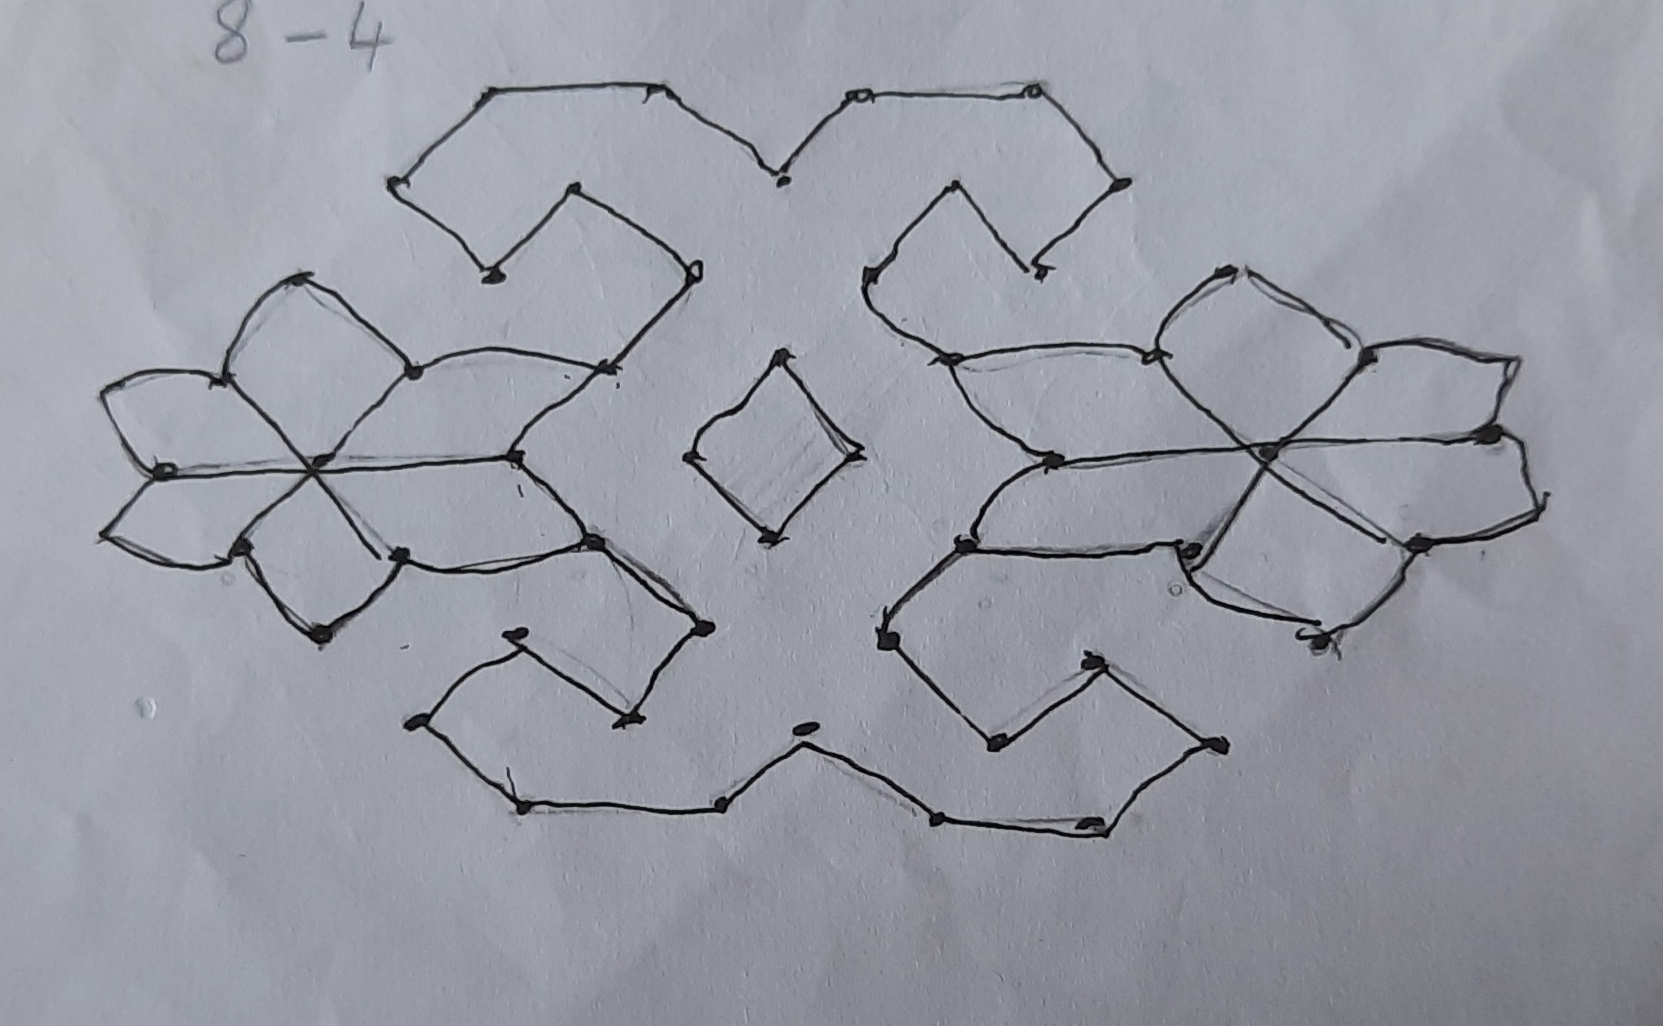 8 - 4